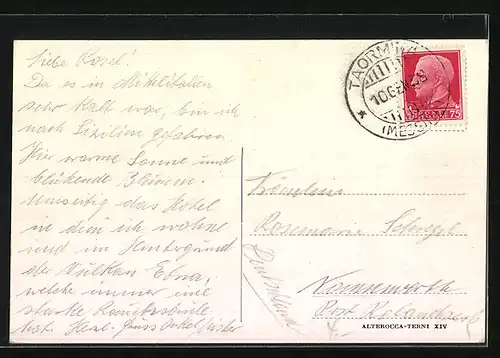 Liebe Rosel!
Da es in Mittelitalien
sehr kalt war, bin ich
nach Sizilien gefahren.
Hier warme Sonne und
blühende Blumen.
Umseitig das Hotel
in dem ich wohne
und im Hintergrund
der Vulkan Etna,
welche immer eine
starke Rauchsäule
hat. Herzl. Gruss Onkel
TAORMINA
10 GEN 38
(MESSINA)
75
Fräulein
Rosemarie
Nonnenwerth
Post Rolandseck
Deutschland
ALTEROCCA-TERNI XIV